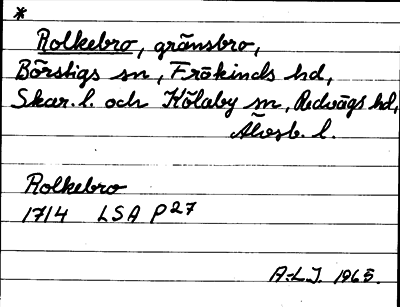 *
Rolkebro, gränsbro,
Börstigs sn, Frökinds hd,
Skar. l. och Kölaby sn, Redvägs hd,
Älvsb. l.
Rolkebro
1714 LSA P27
A-L.J. 1965.